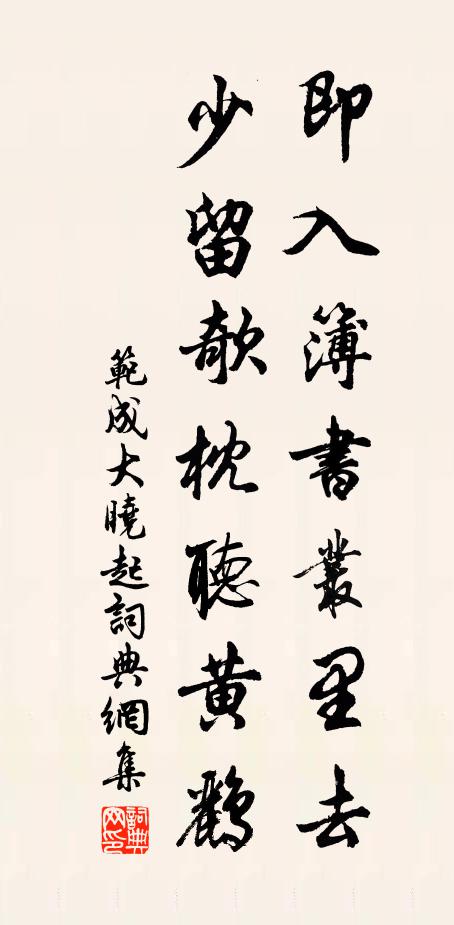 即入簿書叢里去
少留欹枕聽黄鸝
範成大曉起詞典網集
詞典網印